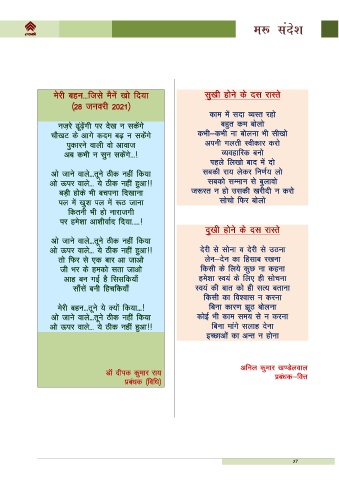 मरू संदेश
मेरी बहन...जिसे मैनें खो दिया
(28 जनवरी 2021)
नज़रे ढूंढेंगी पर देख न सकेंगे
चौखट के आगे कदम बढ़ न सकेंगे
पुकारने वाली वो आवाज
अब कभी न सुन सकेंगे...!
ओ जाने वाले...तूने ठीक नहीं किया
ओ ऊपर वाले... ये ठीक नहीं हुआ!!
बड़ी होके भी बचपना दिखाना
पल में खुश पल में रूठ जाना
कितनी भी हो नाराजगी
पर हमेशा आशीर्वाद दिया....!
ओ जाने वाले...तूने ठीक नहीं किया
ओ ऊपर वाले... ये ठीक नहीं हुआ!!
तो फिर से एक बार आ जाओ
जी भर के हमको सता जाओ
आह बन गई है सिसकियाँ
साँसें बनी हिचकियाँ
मेरी बहन...तूने ये क्यों किया...!
ओ जाने वाले...तूने ठीक नहीं किया
ओ ऊपर वाले... ये ठीक नहीं हुआ!!
डॉ दीपक कुमार राय
प्रबंधक (विधि)
सुखी होने के दस रास्ते
काम में सदा व्यस्त रहो
बहुत कम बोलो
कभी–कभी ना बोलना भी सीखो
अपनी गलती स्वीकार करो
व्यवहारिक बनो
पहले लिखो बाद में दो
सबकी राय लेकर निर्णय लो
सबको सम्मान से बुलावो
जरूरत न हो उसकी खरीदी न करो
सोचो फिर बोलो
दुखी होने के दस रास्ते
देरी से सोना व देरी से उठना
लेन–देन का हिसाब रखना
किसी के लिये कुछ ना कहना
हमेशा स्वयं के लिए ही सोचना
स्वयं की बात को ही सत्य बताना
किसी का विश्वास न करना
बिना कारण झूठ बोलना
कोई भी काम समय से न करना
बिना मांगे सलाह देना
इच्छाओं का अन्त न होना
अनिल कुमार खण्डेलवाल
प्रबंधक–वित्त
27